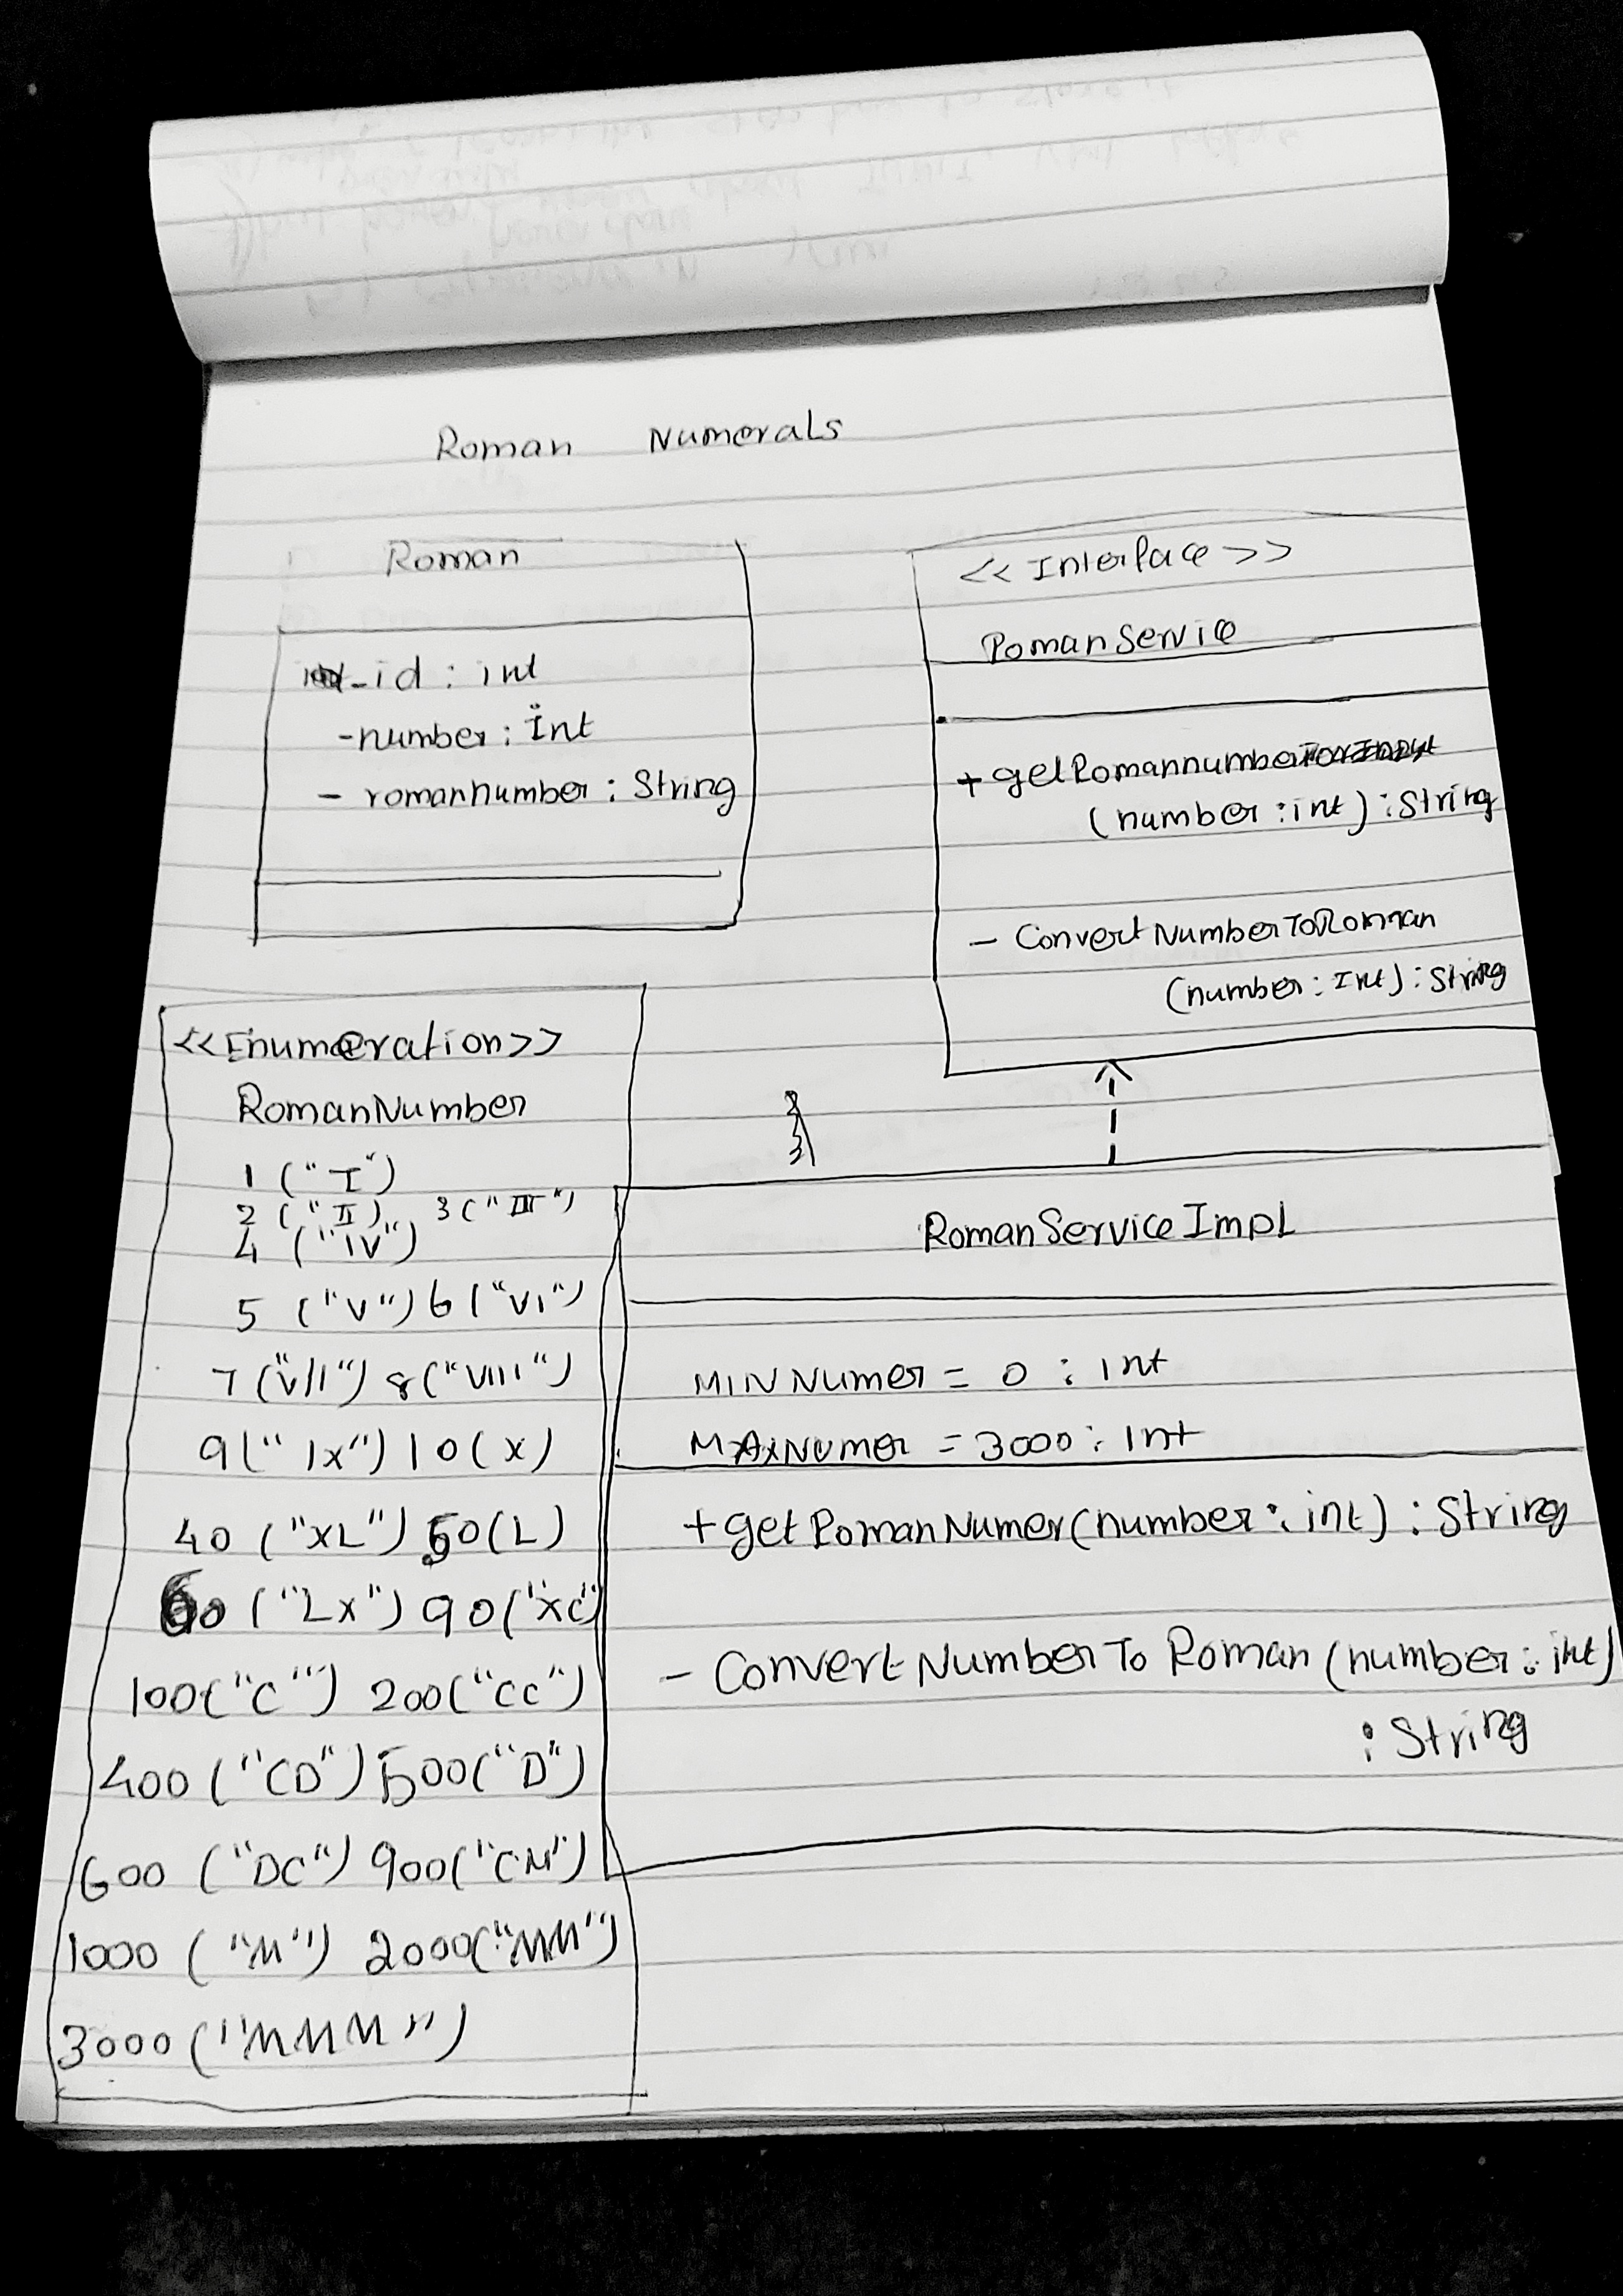 Roman Numerals
Roman
- id : int
- number : Int
- romannumber : String
<< Interface >>
RomanService
+ getRomannumber
(number : int) : String
- ConvertNumberToRoman
(number : Int) : String
<<Enumeration>>
RomanNumber
1 ("I")
2 ("II) 3 ("III")
4 ("IV")
5 ("V") 6 ("VI")
7 ("VII") 8 ("VIII")
9 ("IX") 10 (X)
40 ("XL") 50 (L)
60 ("LX") 90 ("XC")
100 ("C") 200 ("CC")
400 ("CD") 500 ("D")
600 ("DC") 900 ("CM")
1000 ("M") 2000 ("MM")
3000 ("MMM")
RomanServiceImpl
MINNumer = 0 : Int
MAXNumer = 3000 : Int
+ getRomanNumer (number : int) : String
- ConvertNumberToRoman (number : int)
: String